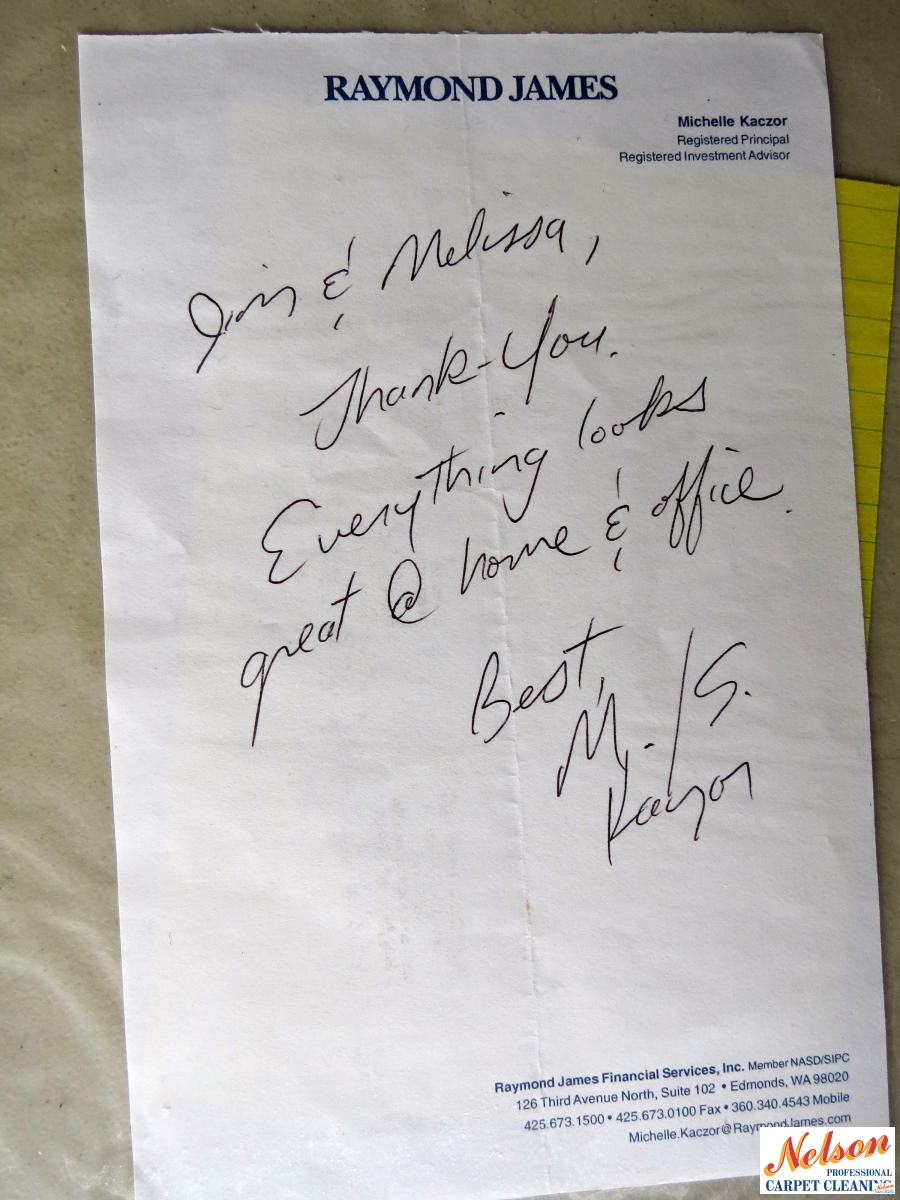 RAYMOND JAMES
Michelle Kaczor
Registered Principal
Registered Investment Advisor
Jim & Melissa,
Thank-You.
Everything looks
great @ home & office.
Best,
M. / S.
Kaczor
Raymond James Financial Services, Inc. Member NASD/SIPC
126 Third Avenue North, Suite 102 • Edmonds, WA 98020
425.673.1500 • 425.673.0100 Fax • 360.340.4543 Mobile
Michelle.Kaczor@RaymondJames.com
Nelson
PROFESSIONAL
CARPET CLEANING
Nelson